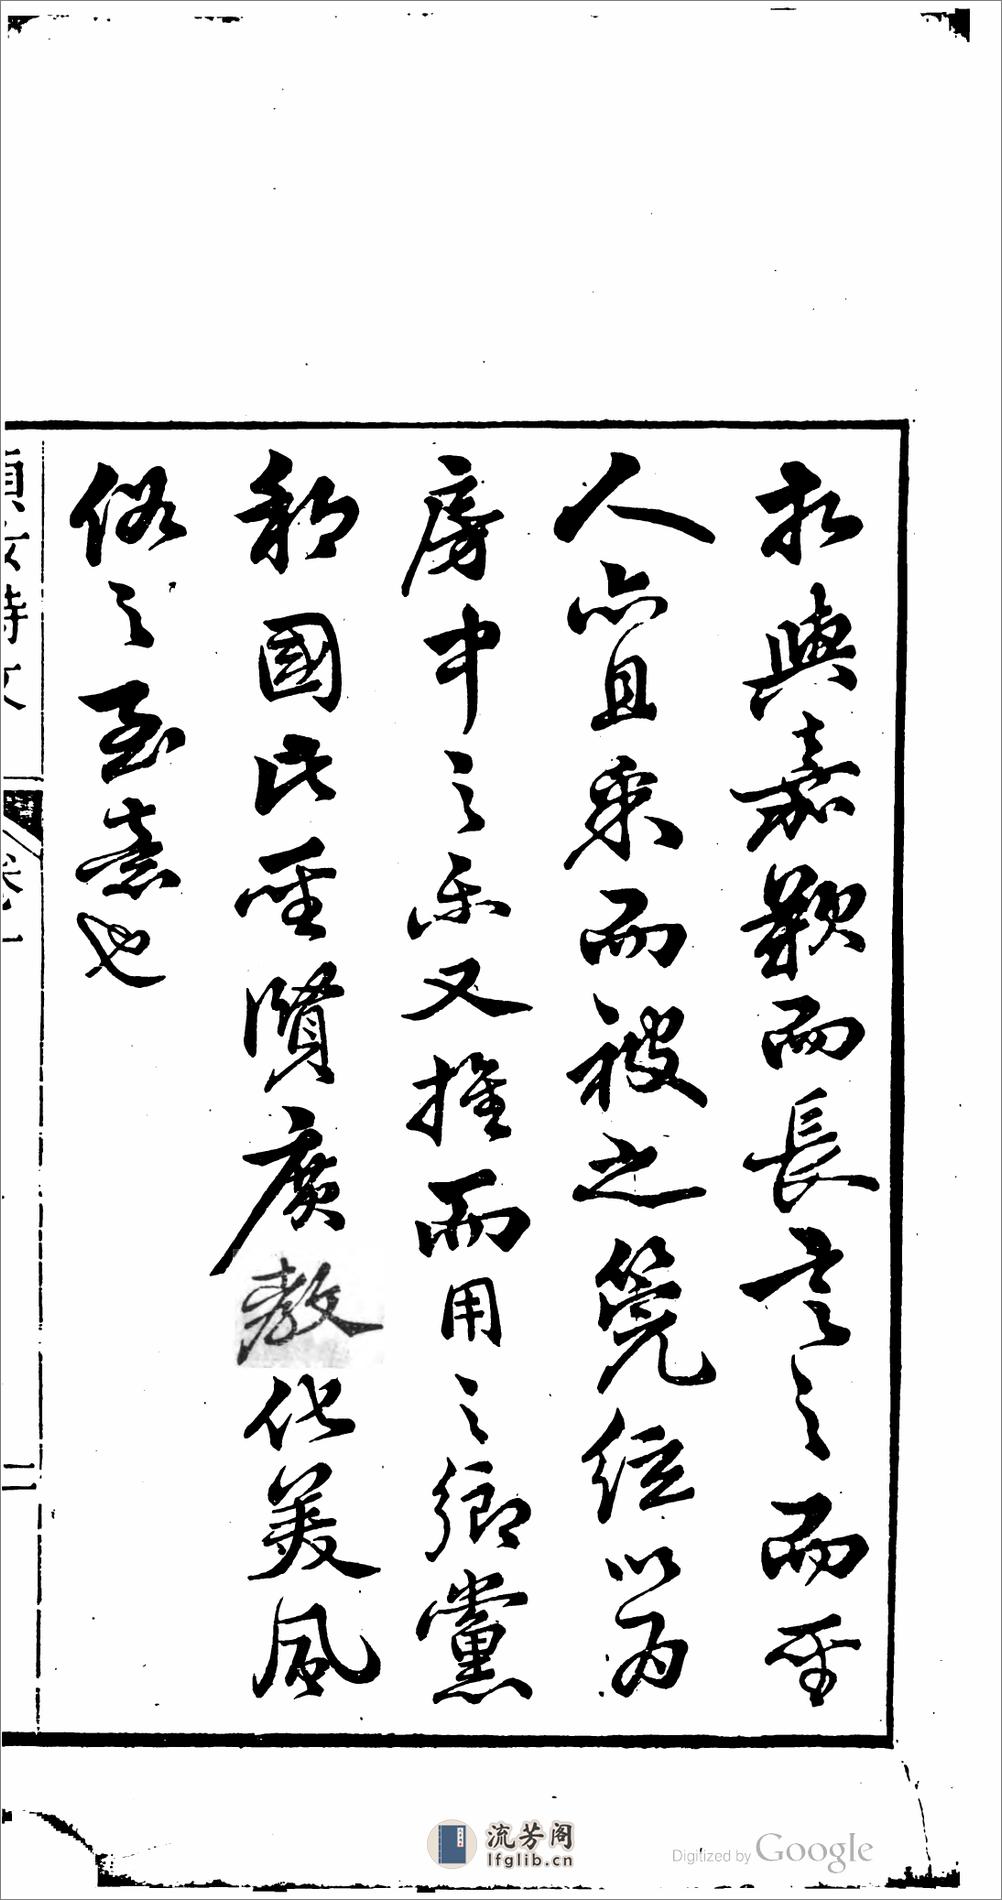 於與嘉歎而長言之而聖
人亦且采而被之筦絃以為
房中之樂又推而用之鄉黨
邦國氏聖賢廣教化美風
俗之至意也
卷一
二
流芳阁
lfglib.cn
Digitized by Google